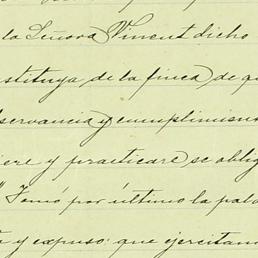 la Señora Vincent dicho
stituya de la finca de qu
servancia y cumplimien
iere y practicare se oblig
" Tomó por último la pala
y expuso: que ejercitan